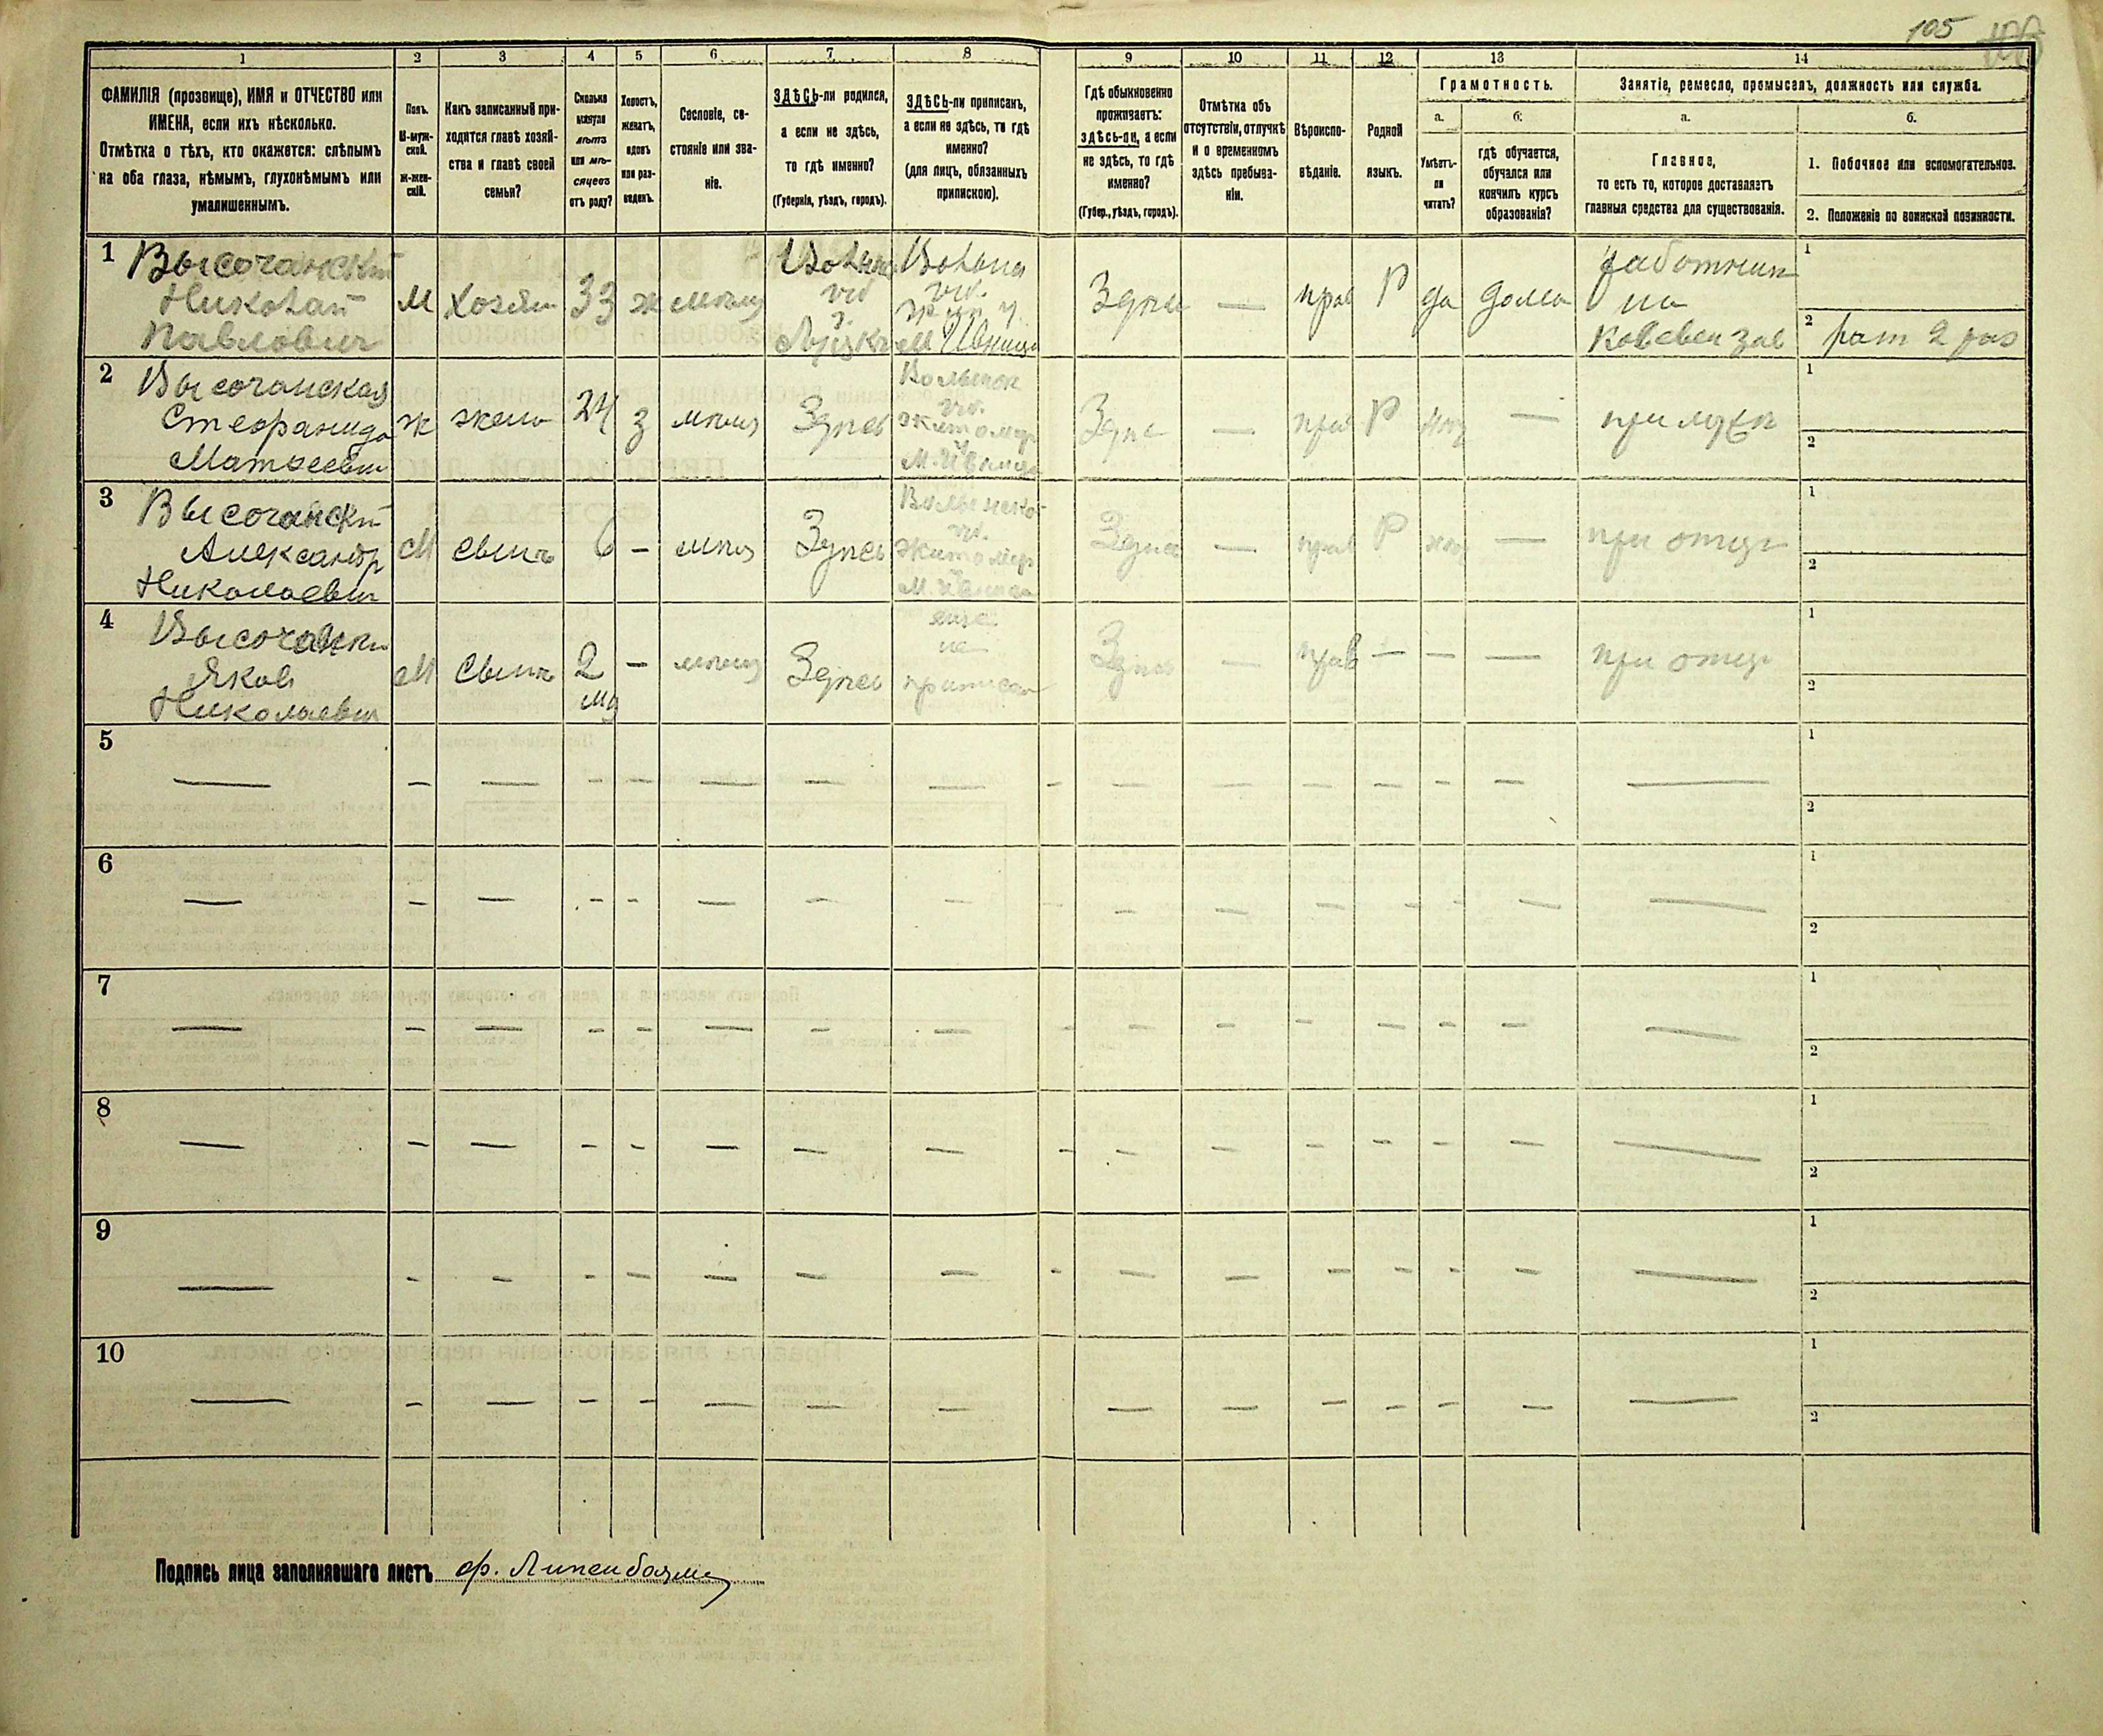 105
1 2 3 4 5 6 7 8 9 10 11 12 13 14
ФАМИЛІЯ (прозвище), ИМЯ и ОТЧЕСТВО или
ИМЕНА, если ихъ нѣсколько.
Отмѣтка о тѣхъ, кто окажется: слѣпымъ
на оба глаза, нѣмымъ, глухонѣмымъ или
умалишеннымъ.
Полъ.
М-муж-
ской.
ж-жен-
скій.
Какъ записанный при-
ходится главѣ хозяй-
ства и главѣ своей
семьи?
Сколько
минуло
лѣтъ
или мѣ-
сяцевъ
отъ роду?
Холостъ,
женатъ,
вдовъ
или раз-
веденъ.
Сословіе, со-
стояніе или зва-
ніе.
ЗДѢСЬ-ли родился,
а если не здѣсь,
то гдѣ именно?
(Губернія, уѣздъ, городъ).
ЗДѢСЬ-ли приписанъ,
а если не здѣсь, то гдѣ
именно?
(для лицъ, обязанныхъ
припискою).
Гдѣ обыкновенно
проживаетъ:
здѣсь-ли, а если
не здѣсь, то гдѣ
именно?
(Губер., уѣздъ, городъ).
Отмѣтка объ
отсутствіи, отлучкѣ
и о временномъ
здѣсь пребыва-
ніи.
Вѣроиспо-
вѣданіе.
Родной
языкъ.
Грамотность.
а. б.
Умѣетъ-
ли
читать?
гдѣ обучается,
обучался или
кончилъ курсъ
образованія?
Занятіе, ремесло, промыселъ, должность или служба.
а. б.
Главное,
то есть то, которое доставляетъ
главныя средства для существованія.
1. Побочное или вспомогательное.
2. Положеніе по воинской повинности.
1
Высочанский
Николай
Павлович
М
хозяин
33
ж
Здпсь
—
прав
Р
да
дома
работник
на
1
2
рат 2 раз
2
Высочанская
Матвеевна
ж
жена
24
з
Здпсь
Житомир
у
М. Ивница
—
прав
Р
—
при муже
1
2
3
Высочанский
Александр
Николаевич
М
сынъ
6
—
Здпсь
Житомир
М. Ивница
Здпсь
—
прав
Р
—
при отце
1
2
4
Яков
Николаевич
М
Сынъ
2
—
Здпсь
еще
не
приписан
Здпсь
—
прав
— — —
при отце
1
2
5
1
2
6
1
2
7
1
2
8
1
2
9
1
2
10
1
2
Подпись лица заполнявшаго листъ